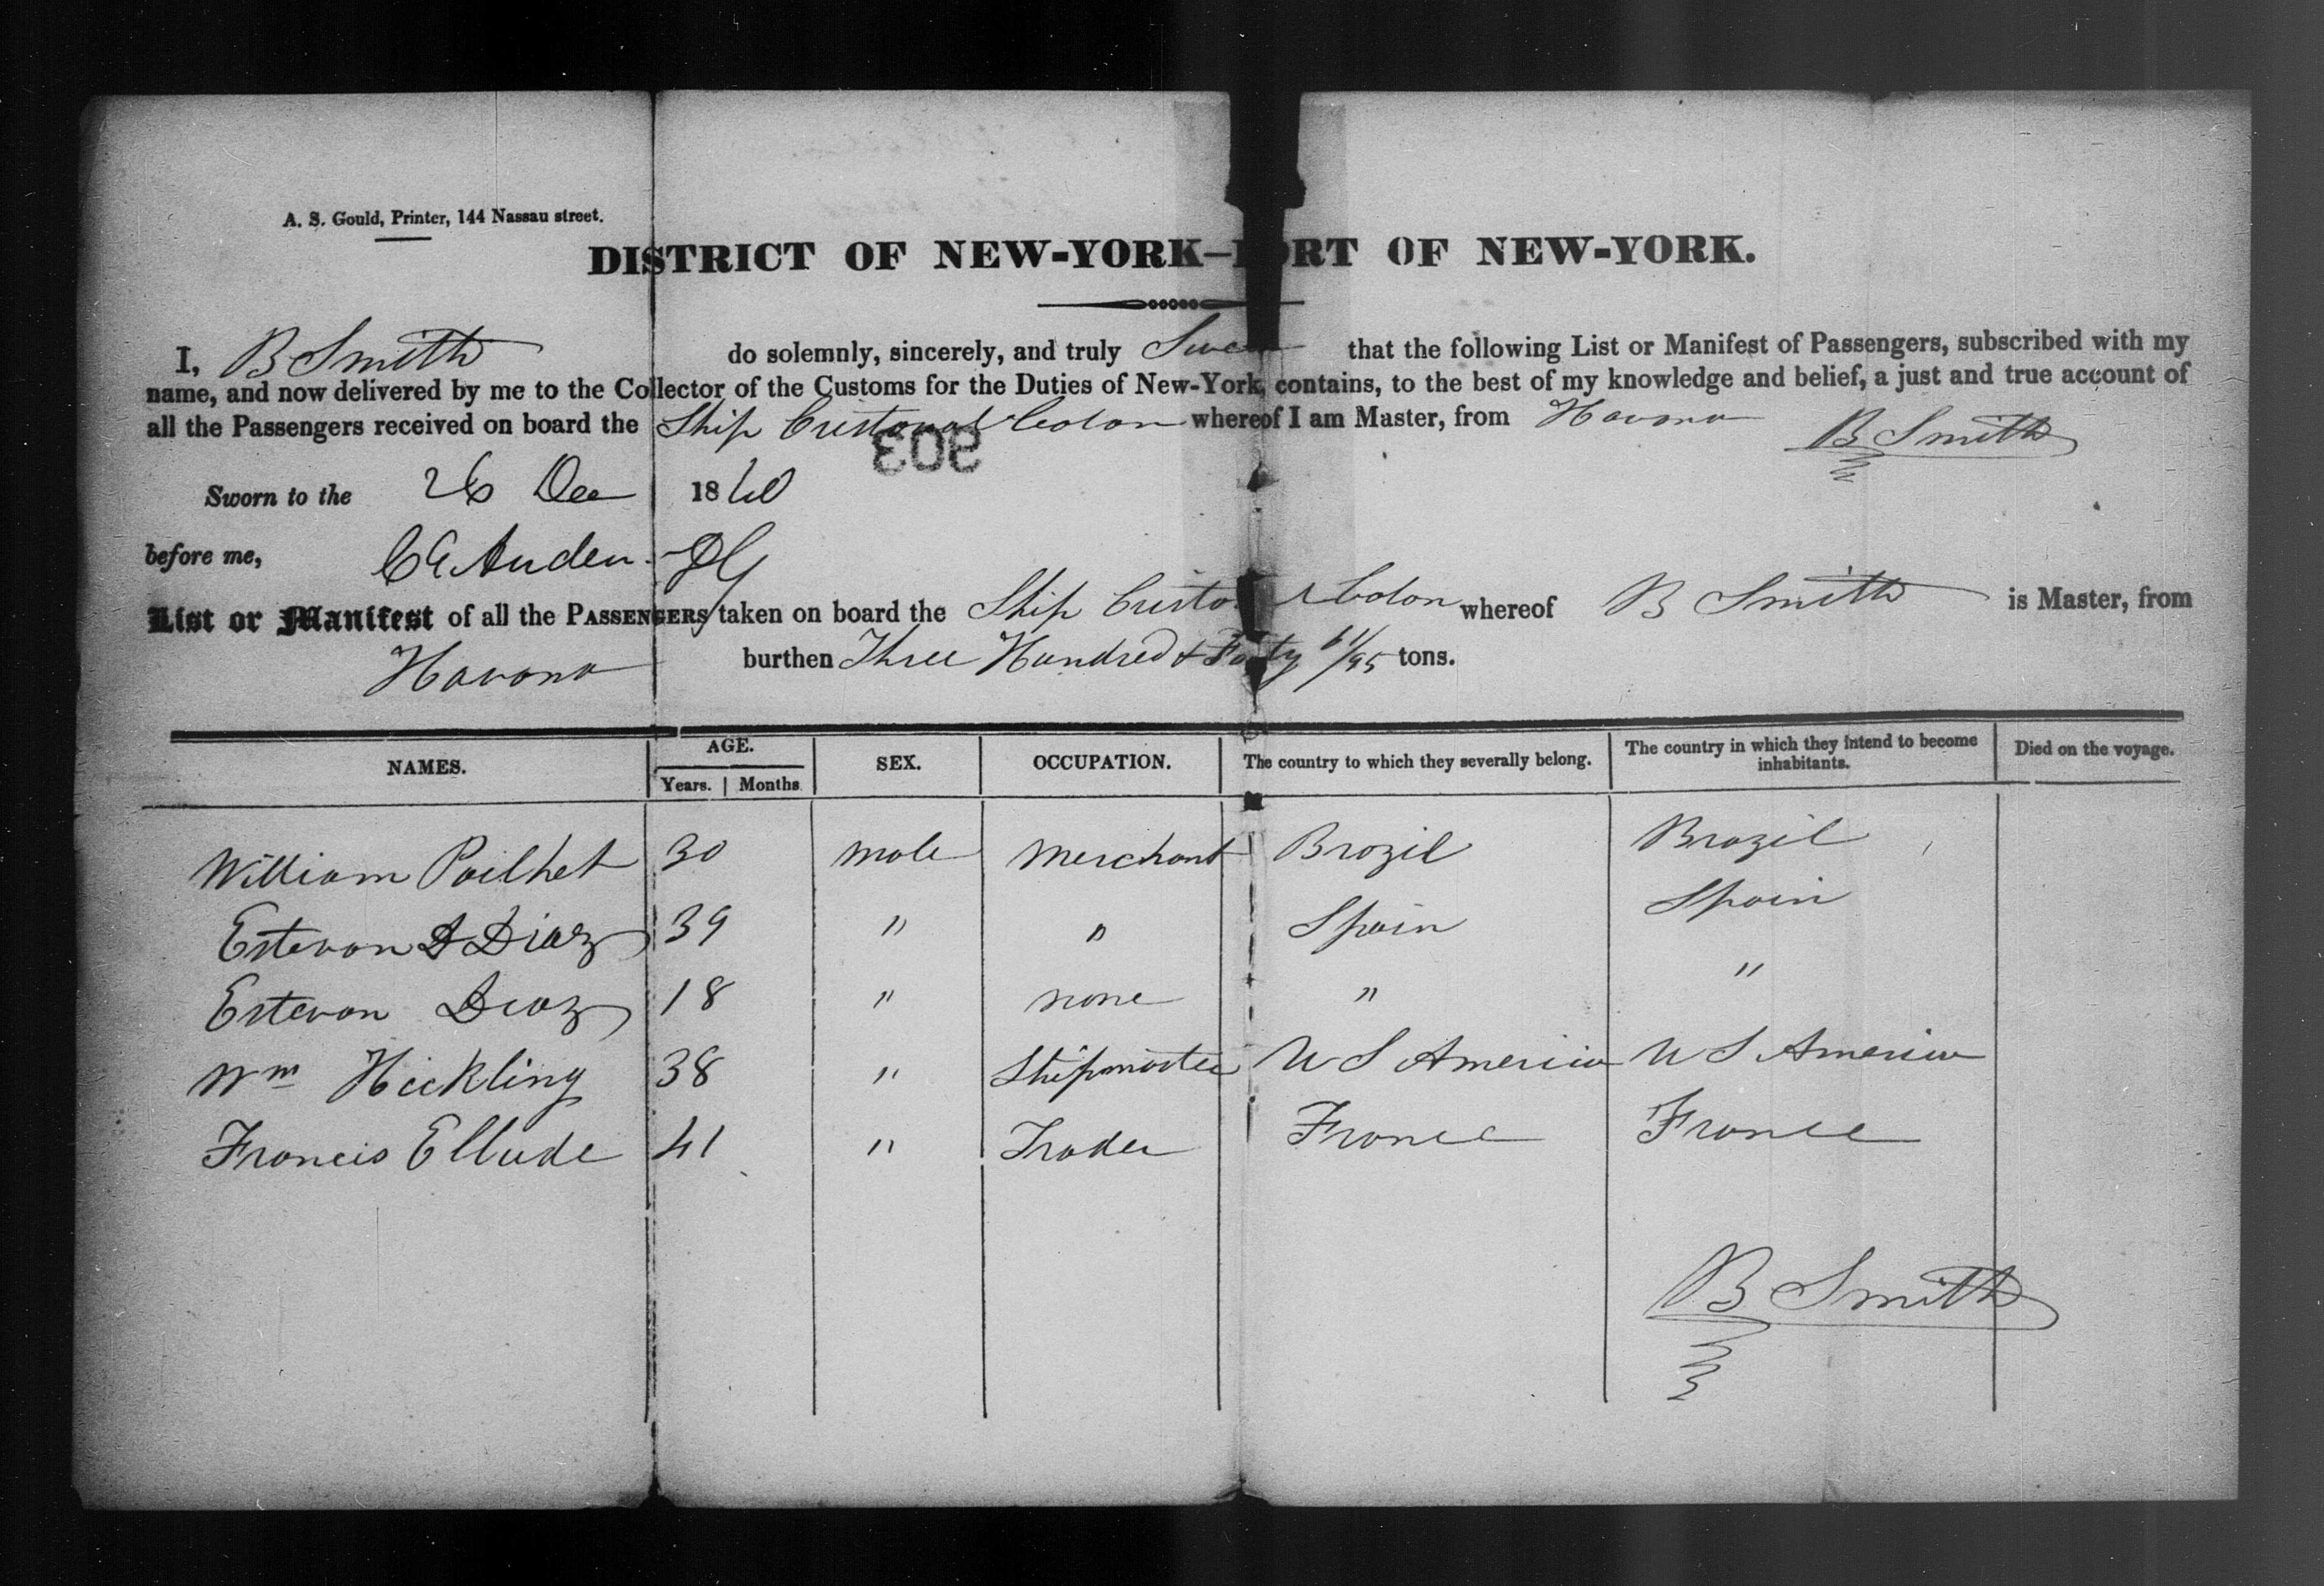 A. S. Gould, Printer, 144 Nassau street.
DISTRICT OF NEW-YORK—PORT OF NEW-YORK.
I, B Smith do solemnly, sincerely, and truly Swear that the following List or Manifest of Passengers, subscribed with my
name, and now delivered by me to the Collector of the Customs for the Duties of New-York, contains, to the best of my knowledge and belief, a just and true account of
all the Passengers received on board the Ship Cristoval Colon whereof I am Master, from Havana
B Smith
903
Sworn to the 26 Dec 1860
before me,
List or Manifest of all the PASSENGERS taken on board the Ship Cristoval Colon whereof B Smith is Master, from
Havana burthen Three Hundred & Forty 61/95 tons.
NAMES. AGE. SEX. OCCUPATION. The country to which they severally belong. The country in which they intend to become inhabitants. Died on the voyage.
Years. Months
William Pailhet 30 male merchant Brazil Brazil
Estevan D Diaz 39 " " Spain Spain
Estevan Diaz 18 " none " "
Wm Hickling 38 " Shipmaster U S America U S America
Francis Ellude 41 " Trader France France
B Smith